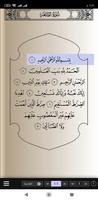 سُورَةُ الْفَاتِحَةِ
بِسْمِ ٱللَّهِ ٱلرَّحْمَٰنِ ٱلرَّحِيمِ
ٱلْحَمْدُ لِلَّهِ رَبِّ ٱلْعَٰلَمِينَ
ٱلرَّحْمَٰنِ ٱلرَّحِيمِ مَٰلِكِ يَوْمِ ٱلدِّينِ
إِيَّاكَ نَعْبُدُ وَإِيَّاكَ نَسْتَعِينُ
ٱهْدِنَا ٱلصِّرَٰطَ ٱلْمُسْتَقِيمَ صِرَٰطَ
ٱلَّذِينَ أَنْعَمْتَ عَلَيْهِمْ غَيْرِ ٱلْمَغْضُوبِ عَلَيْهِمْ
وَلَا ٱلضَّآلِّينَ